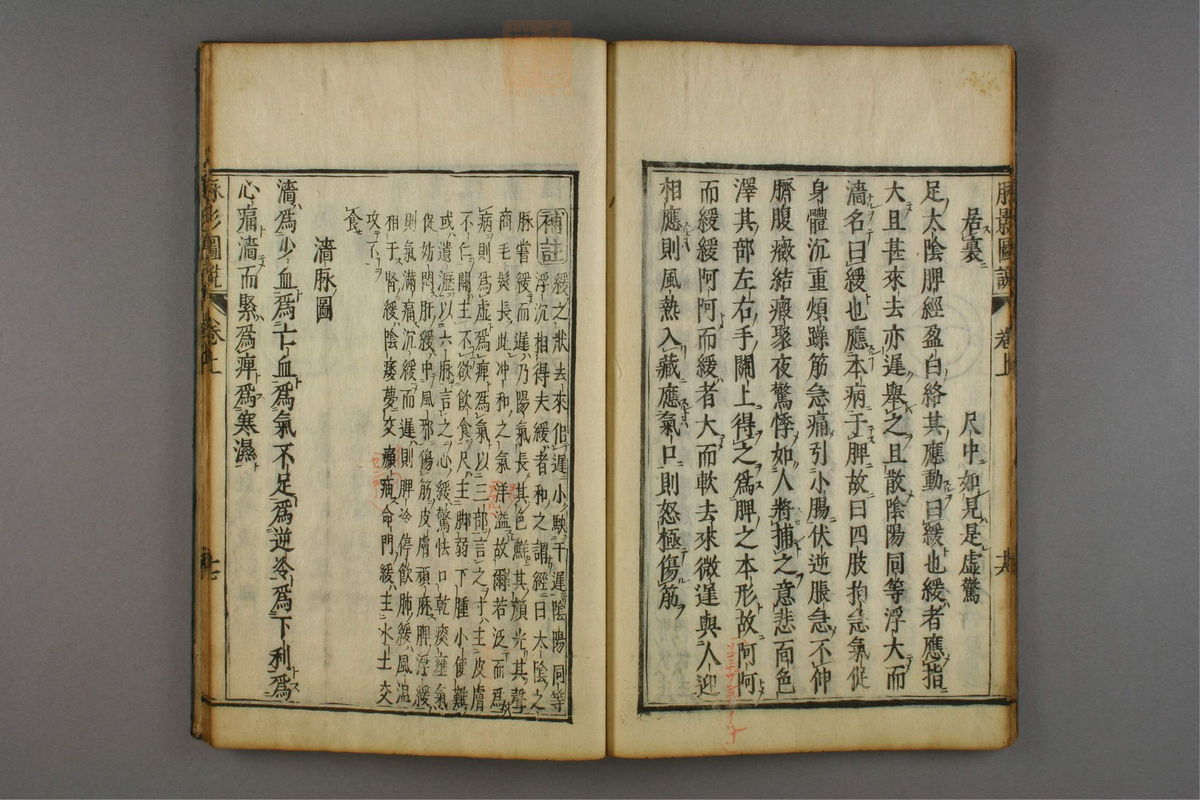 脈影圖說 卷上
居裏 尺中如見是虛驚
足太陰脾經盈白絡其應動曰緩也緩者應指
大且甚來去亦遲舉之且散陰陽同等浮大而
濇名曰緩也應本病于脾故曰四肢拘急氣促
身體沉重煩躁筋急痛引小腸伏逆脹急不伸
臍腹癥結瘕聚夜驚悸如人將捕之意悲面色
澤其部左右手關上得之爲脾之本形故阿阿
而緩緩阿阿而緩者大而軟去來微遲與人迎
相應則風熱入藏應氣口則怒極傷筋
補註 緩之狀去來怠遲小駛于遲陰陽同等
浮沉相得夫緩者和之謂經曰太陰之
脉嘗緩而遲乃陽氣長其色鮮其顏光其聲
商毛髮長此冲和之氣洋溢故爾若泛而爲
病則爲虛爲痺爲氣以三部言之寸主皮膚
不仁關主不欲飲食尺主脚弱下腫小便難
或遺瀝以六脉言之心緩驚怯口乾痰壅氣
促妨悶肝緩中風邪傷筋皮膚頑麻脾浮緩
則氣滿痛沉緩而遲則脾冷停飲肺緩風溫
相干腎緩陰痿夢交癲痫命門緩主水土交
攻不
食
濇脉圖
濇爲少血爲亡血爲氣不足爲逆冷爲下利爲
心痛濇而緊爲痺爲寒濕
脉影圖說 卷上 十七